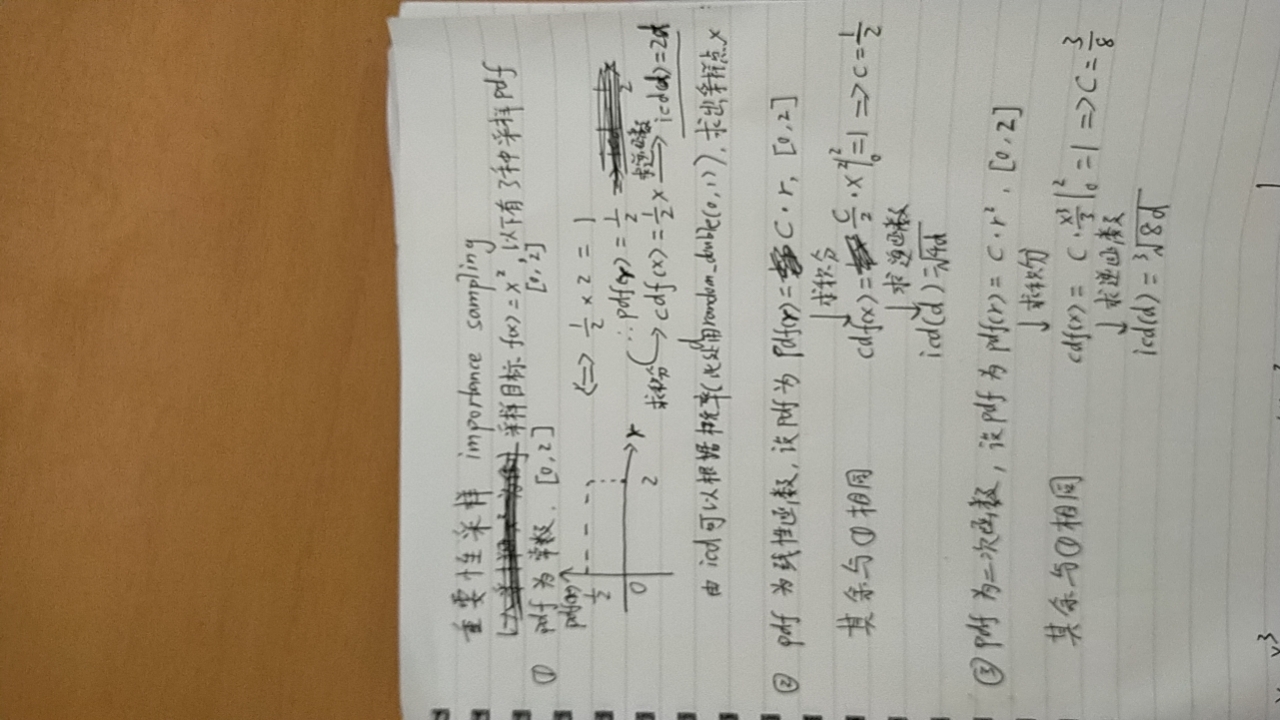 重要性采样 importance sampling
采样目标 f(x) = x², 以下有3种采样pdf
[0,2]
① pdf 为常数, [0,2]
pdf(r)
1/2
0 2 r
<=> 1/2 × 2 = 1
∴ pdf(r) = 1/2
求积分 → cdf(x) = 1/2 x 求逆函数 → icd(d) = 2d
由 icd 可以根据概率d(此处用random_double(0,1)), 求出采样点x
② pdf 为线性函数, 设pdf为 pdf(r) = C·r, [0,2]
↓求积分
其余与①相同 cdf(x) = C/2 · x²|₀² = 1 => C = 1/2
↓求逆函数
icd(d) = √4d
③ pdf 为二次函数, 设pdf为 pdf(r) = C·r², [0,2]
↓求积分
其余与①相同 cdf(x) = C · x³/3 |₀² = 1 => C = 3/8
↓求逆函数
icd(d) = ³√8d